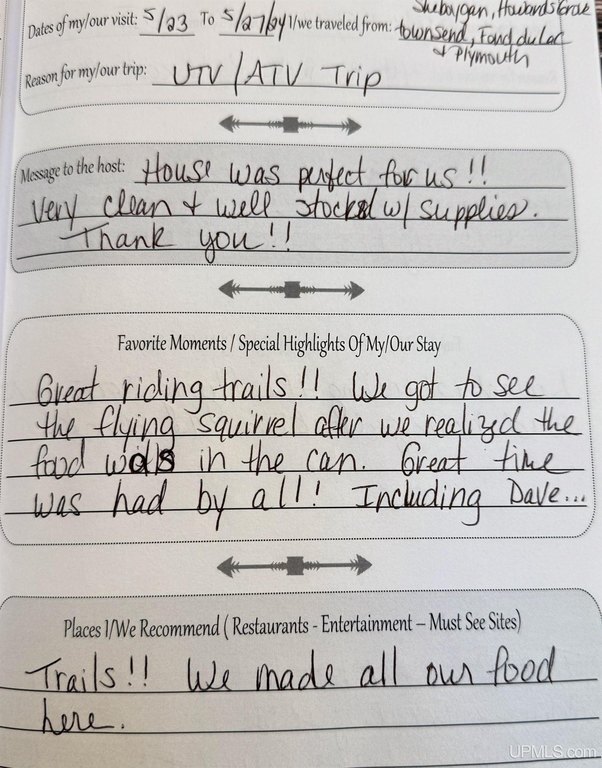 Sheboygan, Howards Grove
Dates of my/our visit: 5/23 To 5/27/24 I/we traveled from: townsend, Fond du Lac
+ Plymouth
Reason for my/our trip: UTV/ATV Trip
Message to the host: House was perfect for us!!
Very clean + well stocked w/ supplies.
Thank you!!
Favorite Moments / Special Highlights Of My/Our Stay
Great riding trails!! We got to see
the flying squirrel after we realized the
food was in the can. Great time
was had by all! Including Dave...
Places I/We Recommend ( Restaurants - Entertainment – Must See Sites)
Trails!! We made all our food
here.
UPMLS.com